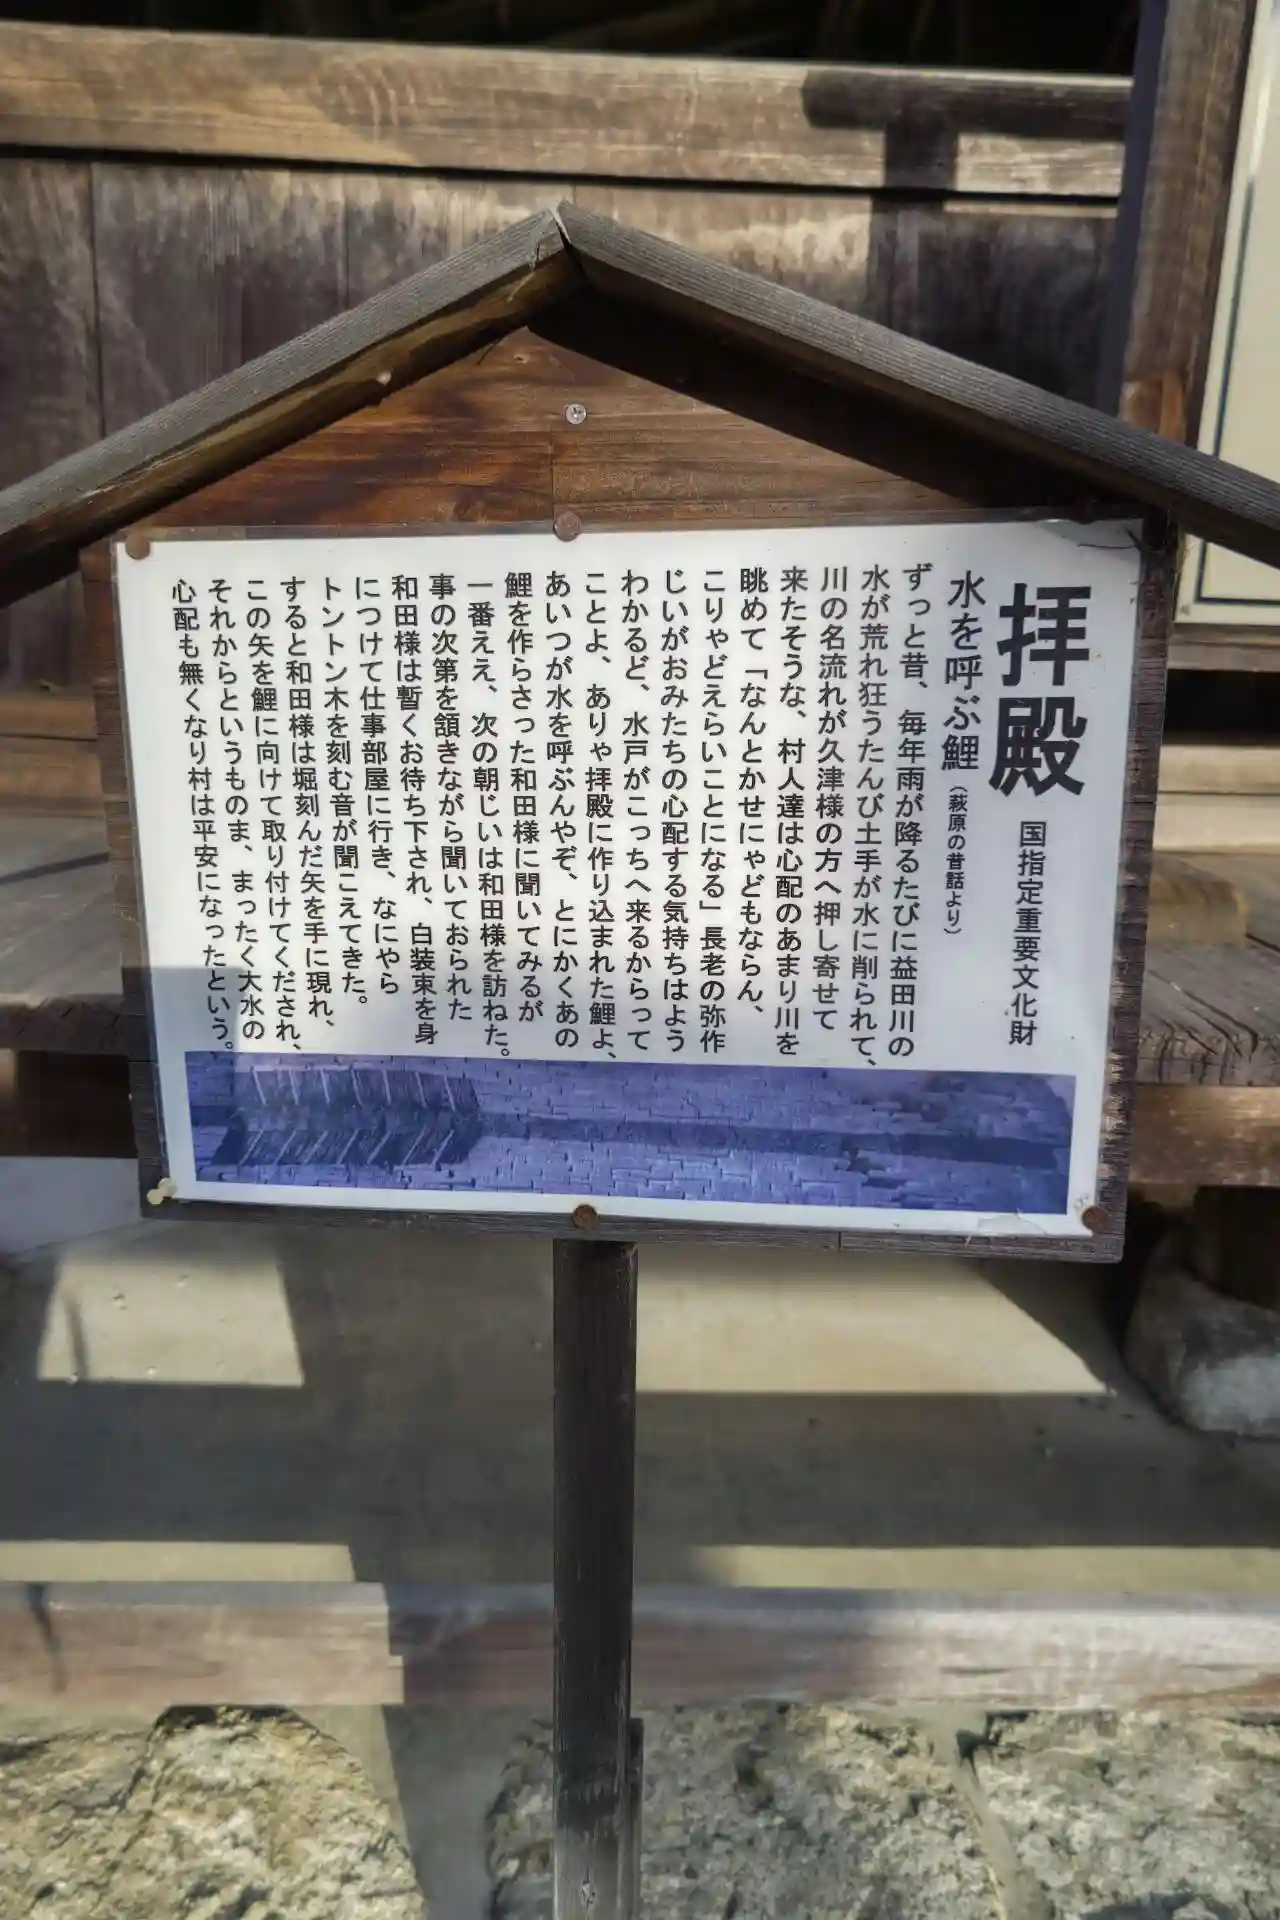 拝殿 国指定重要文化財
水を呼ぶ鯉(萩原の昔話より)
ずっと昔、毎年雨が降るたびに益田川の
水が荒れ狂うたんび土手が水に削られて、
川の名流れが久津様の方へ押し寄せて
来たそうな、村人達は心配のあまり川を
眺めて「なんとかせにゃどもならん、
こりゃどえらいことになる」長老の弥作
じいがおみたちの心配する気持ちはよう
わかるど、水戸がこっちへ来るからって
ことよ、ありゃ拝殿に作り込まれた鯉よ、
あいつが水を呼ぶんやぞ、とにかくあの
鯉を作らさった和田様に聞いてみるが
一番ええ、次の朝じいは和田様を訪ねた。
事の次第を頷きながら聞いておられた
和田様は暫くお待ち下され、白装束を身
につけて仕事部屋に行き、なにやら
トントン木を刻む音が聞こえてきた。
すると和田様は堀刻んだ矢を手に現れ、
この矢を鯉に向けて取り付けてくだされ、
それからというものま、まったく大水の
心配も無くなり村は平安になったという。